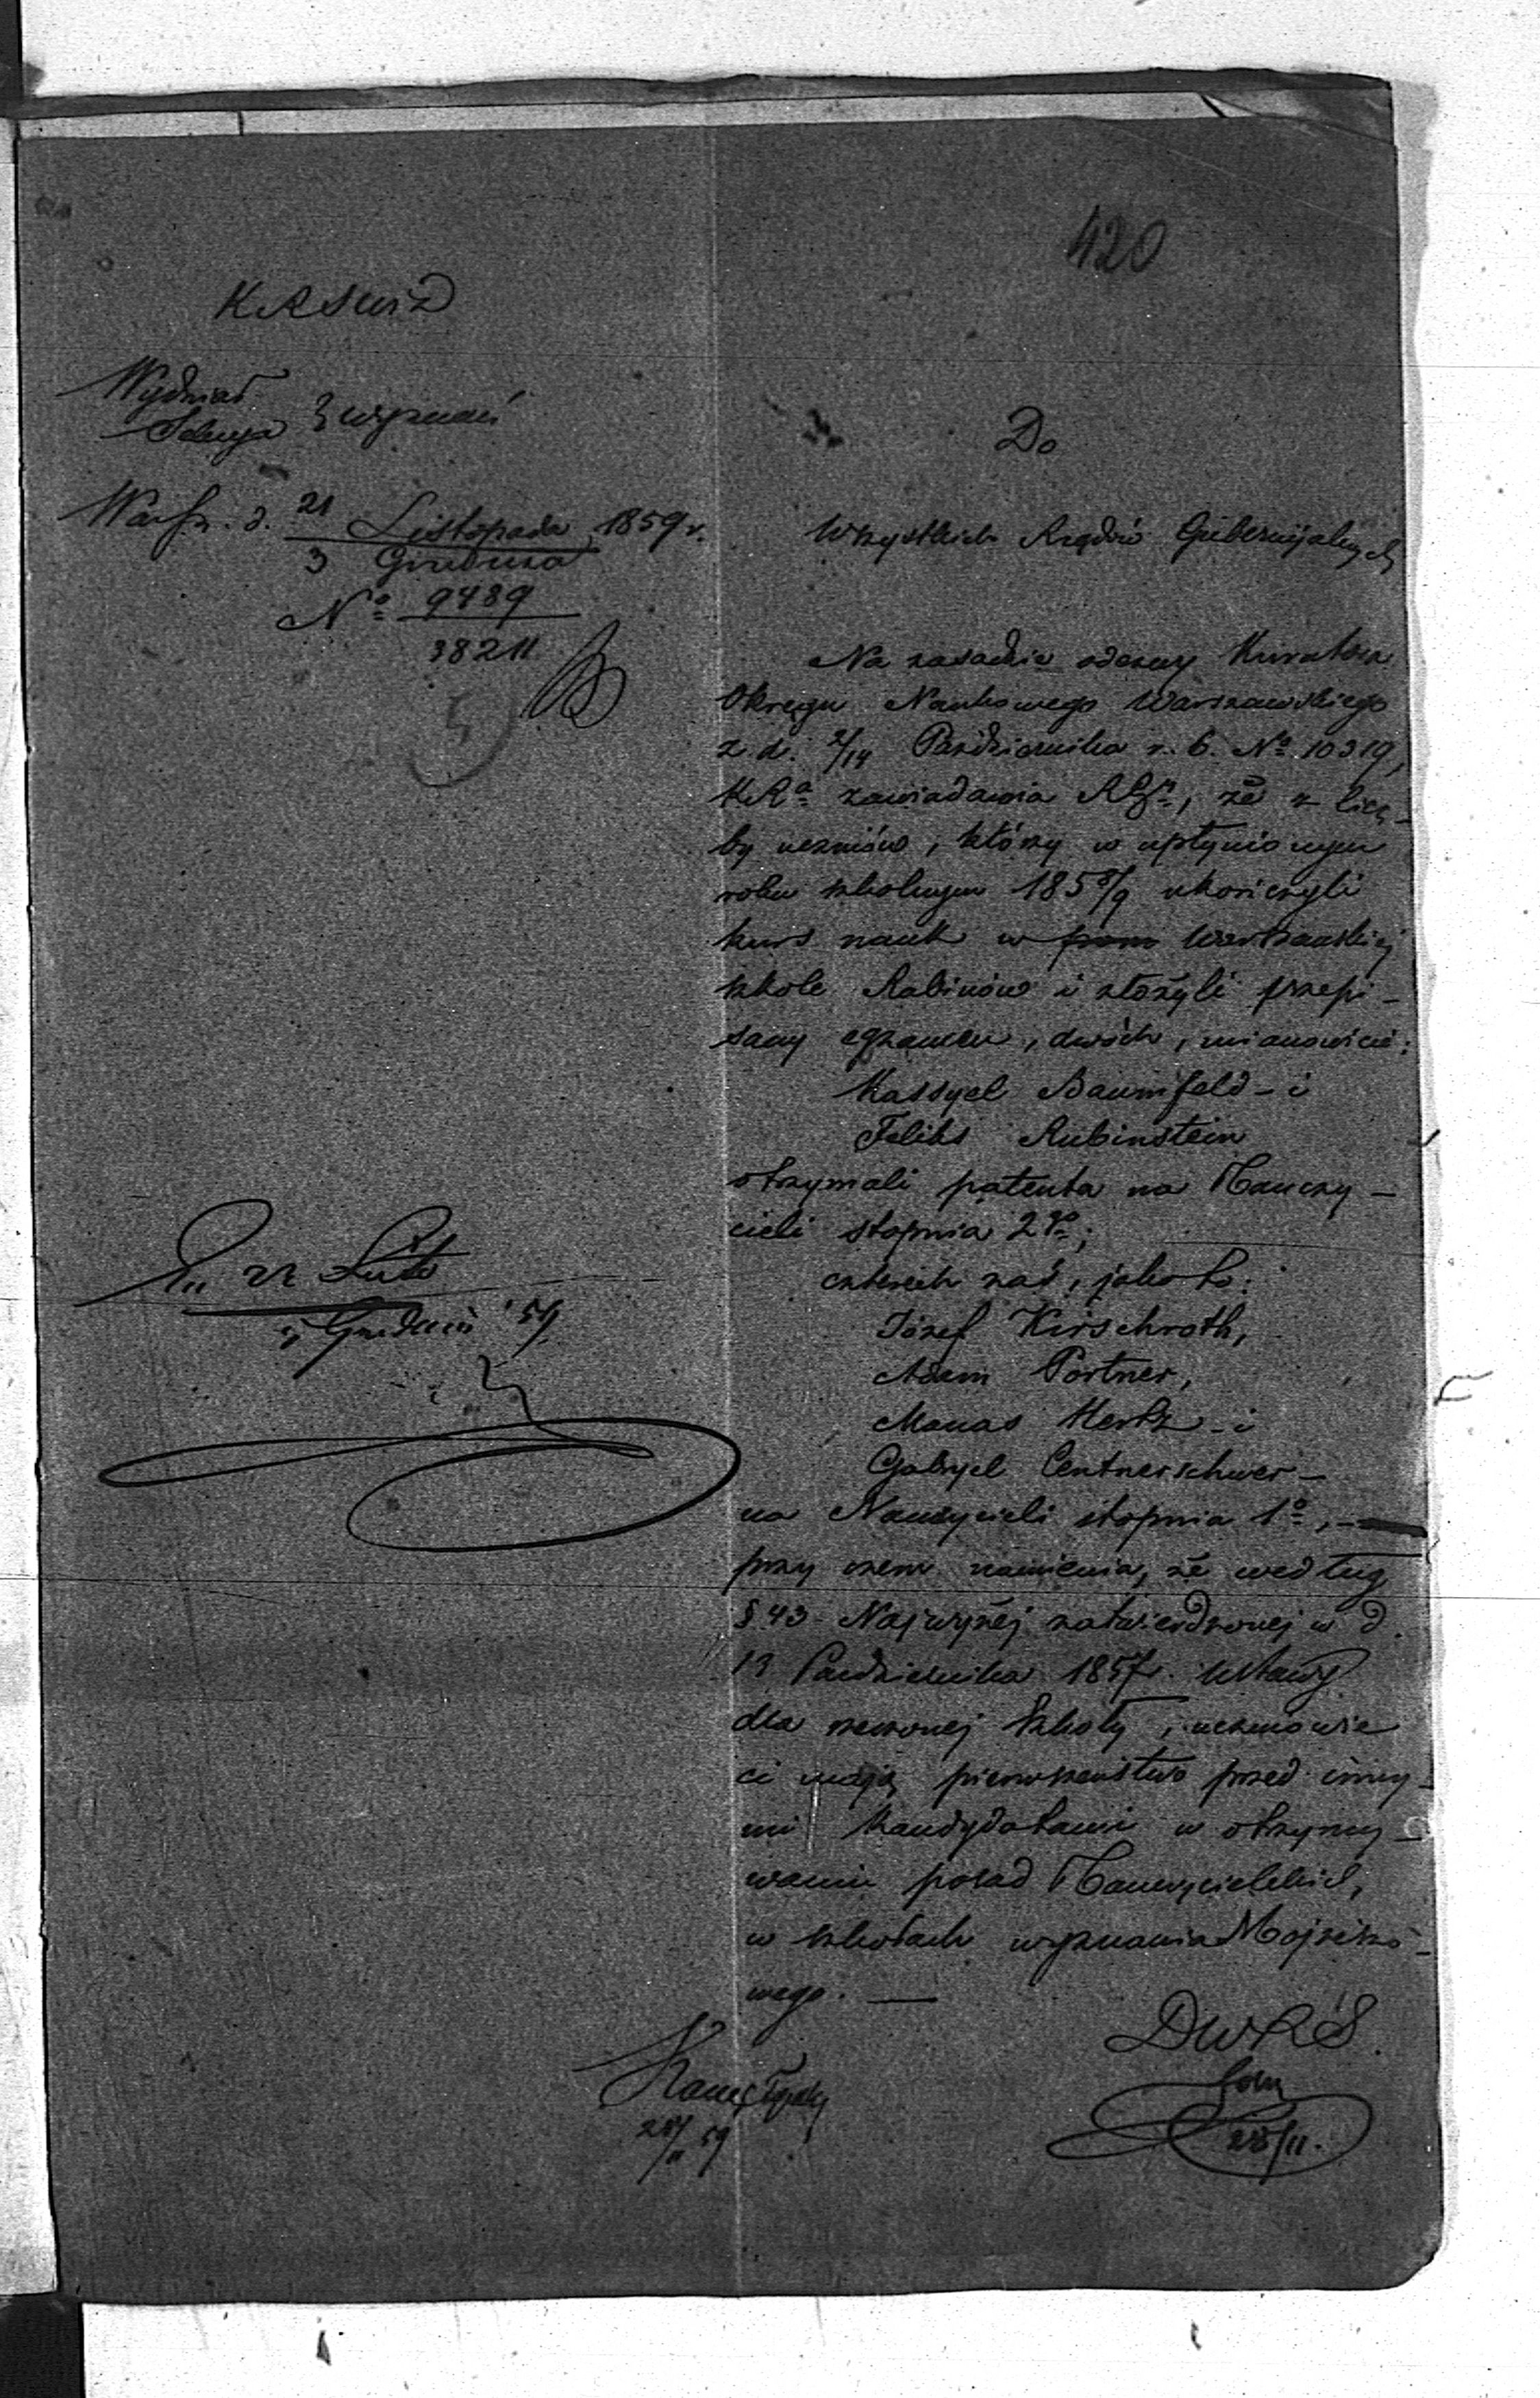 420
KRSWiD
Wydział
Sekcya } wyznań
Warsz. d. 21 Listopada 1859 r.
3 Grudnia
Nº 9489
38211
5
Do
Wszystkich Rządów Gubernijalnych
Na zasadzie odezwy Kuratora
Okręgu Naukowego Warszawskiego
z d. 2/14 Października r. b. Nº 10319,
KRª zawiadamia RGn, że z licz-
by uczniów, którzy w upłynionym
roku szkolnym 1858/9 ukończyli
kurs nauk w Warszawskiej
szkole Rabinów i złożyli przepi-
sany egzamen, dwóch, mianowicie:
Kassyel Baumfeld - i
Feliks Rubinstein
otrzymali patenta na Nauczy-
cieli stopnia 2go;
czterech zaś, jako to:
Józef Kirschroth,
Adam Portner,
Manas Hertz - i
Gabryel Centnerschwer -
na Nauczycieli stopnia 1º, -
przy czem namienia, że według
§ 43 Najwyżej zatwierdzonej w d.
13 Października 1857 r. Ustawy
dla rzeczonej Szkoły, uczniowie
ci mają pierwszeństwo przed inny-
mi Kandydatami w otrzymy-
waniu posad Nauczycielskich,
w szkołach wyznania Mojżeszo-
wego. —
Grudnia 59
DWRS
28/11.
28/11 59